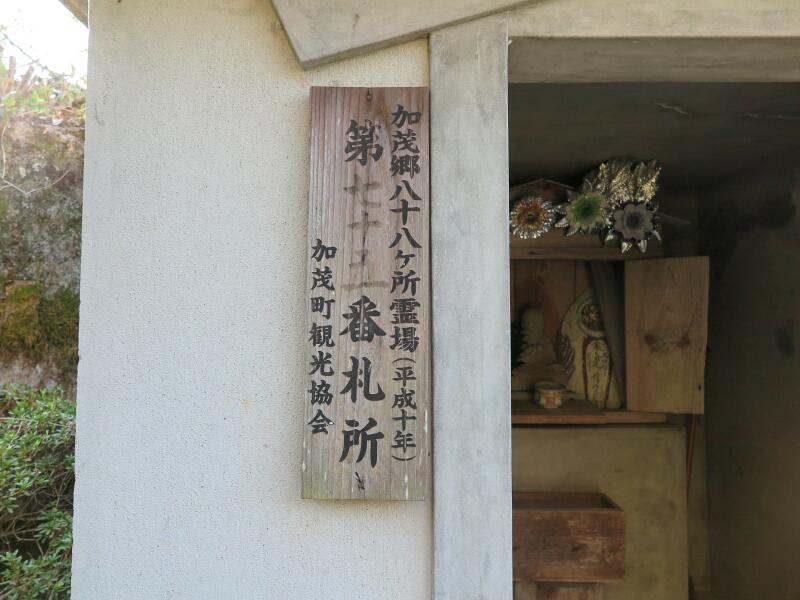 加茂郷八十八ヶ所霊場(平成十年)
第七十二番札所
加茂町観光協会